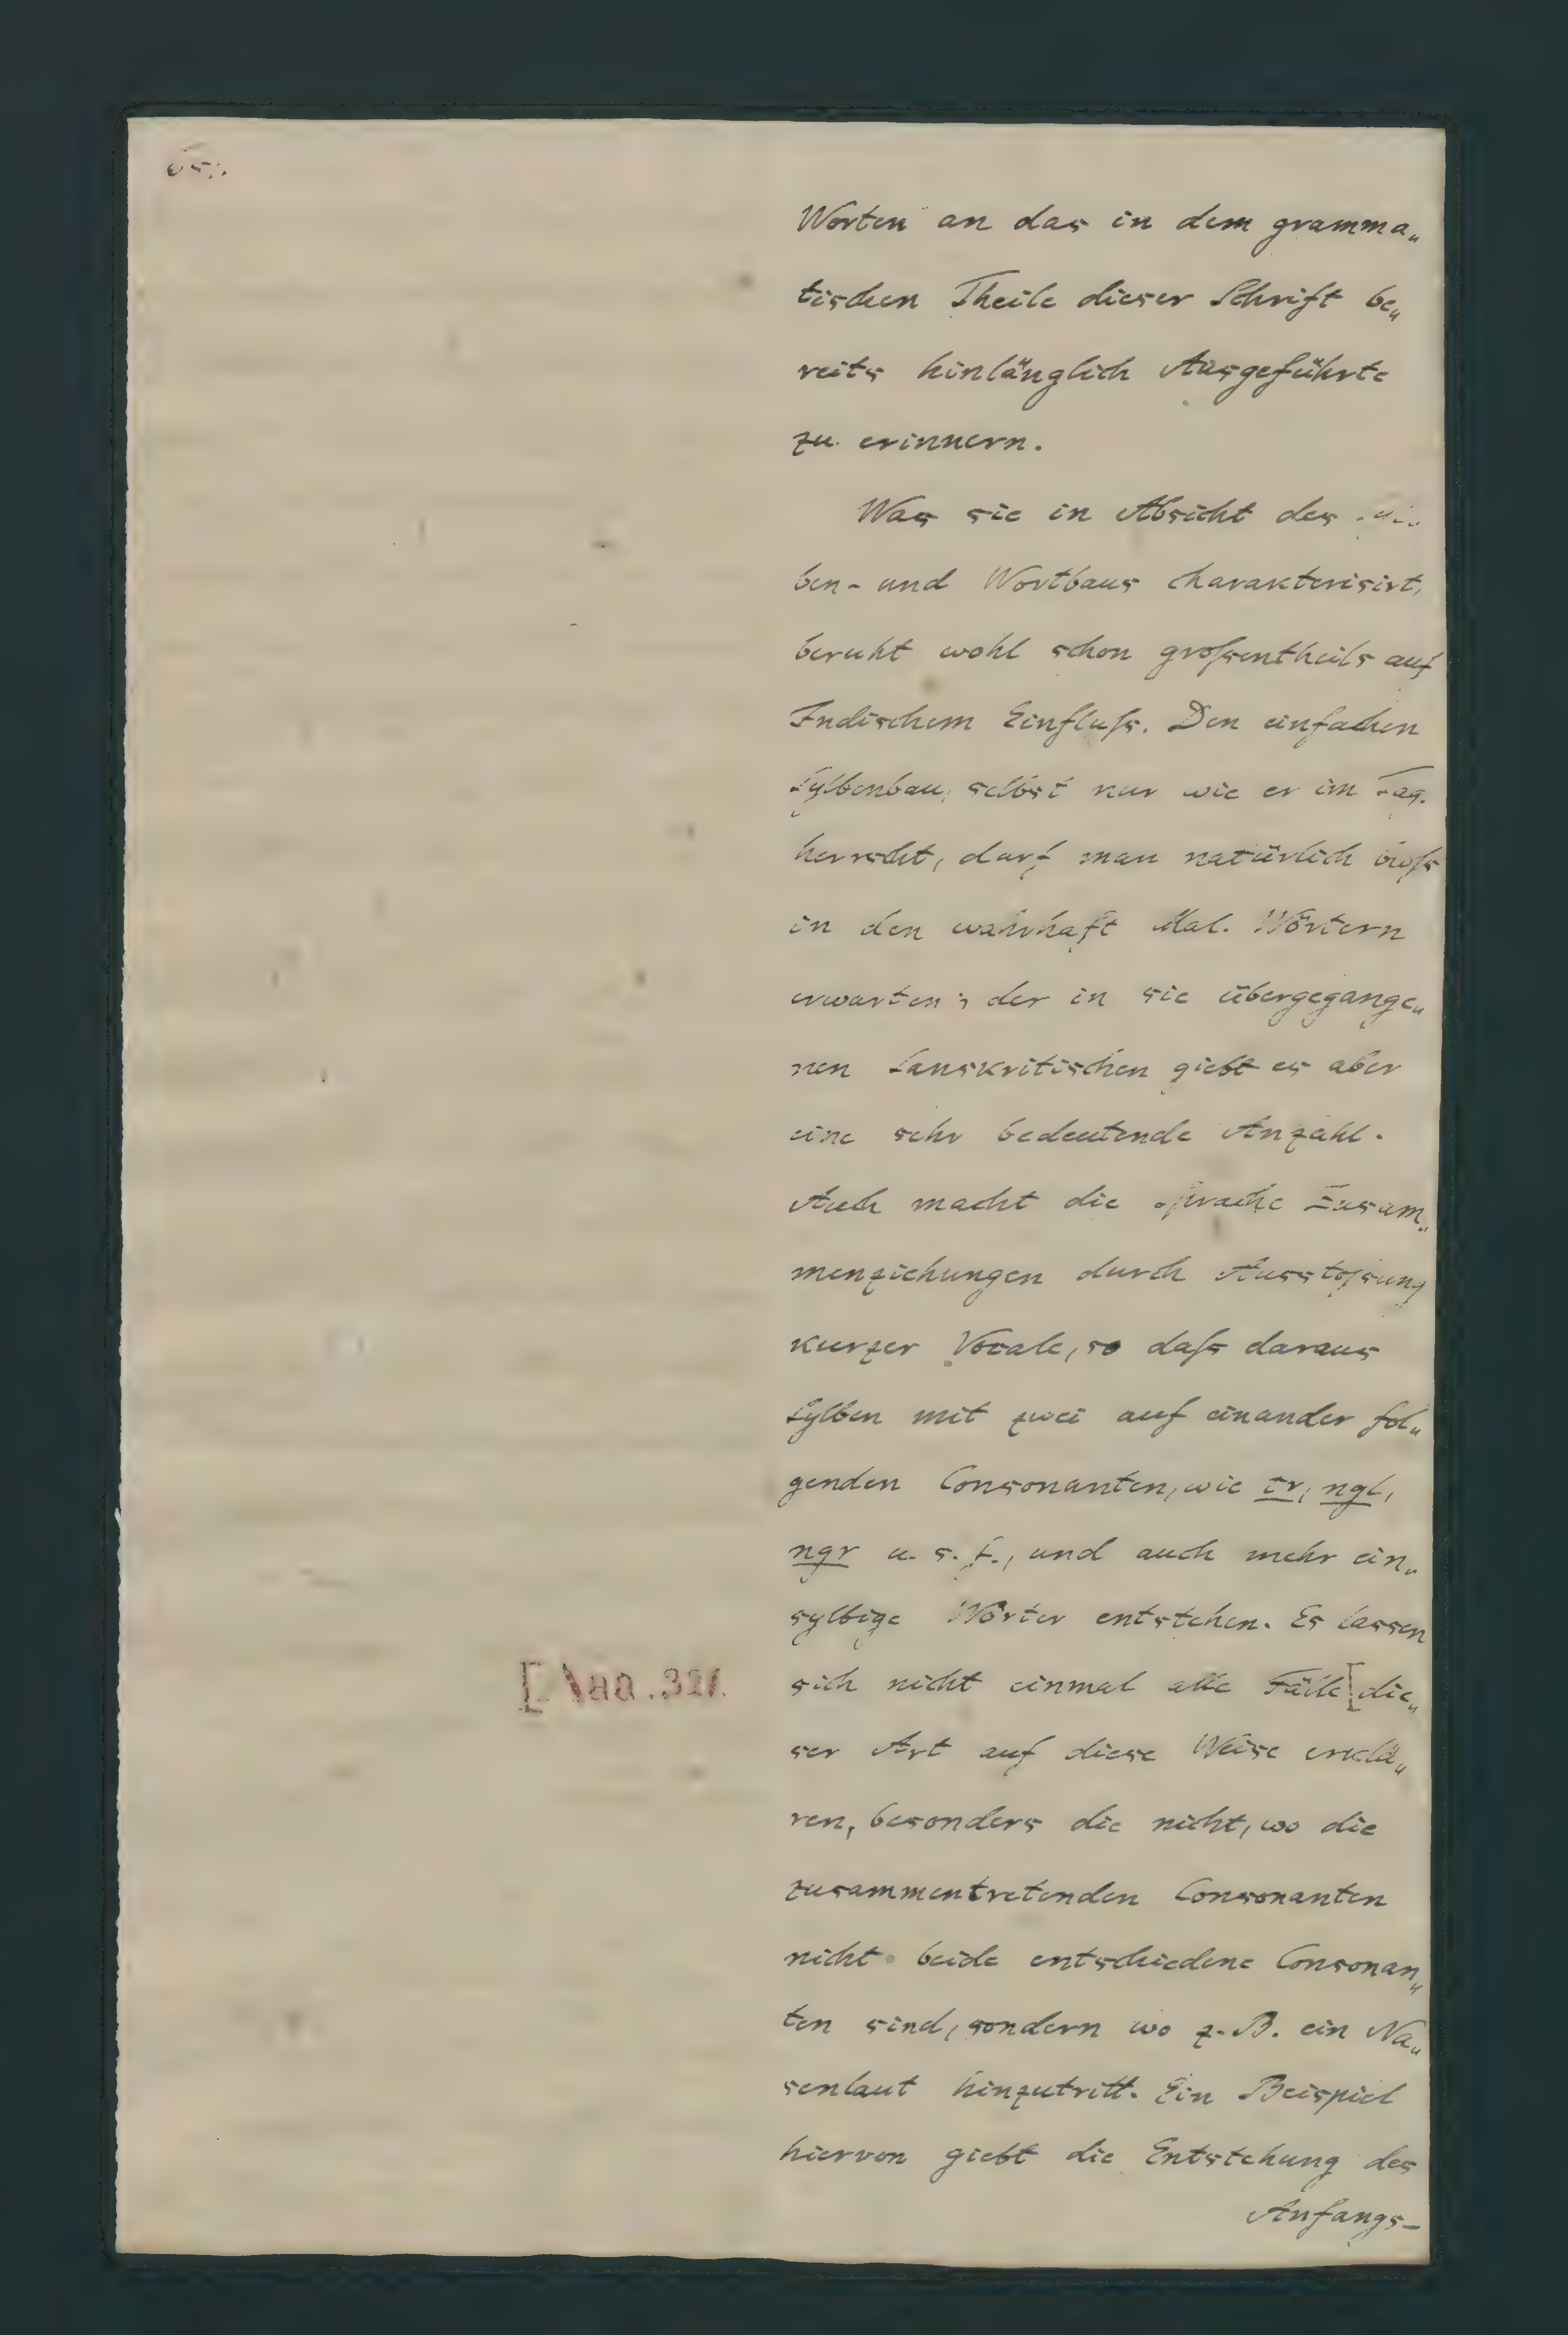 Worten an das in dem gramma„
tischen Theile dieser Schrift be„
reits hinlänglich Ausgeführte
zu erinnern.
Was sie in Absicht des
ben- und Wortbaus charakterisirt,
beruht wohl schon großentheils auf
Indischem Einfluß. Den einfachen
Sylbenbau, selbst nur wie er im Tag.
herrscht, darf man natürlich bloß
in den wahrhaft Mal. Wörtern
erwarten; der in sie übergegange„
nen Sanskritischen giebt es aber
eine sehr bedeutende Anzahl.
Auch macht die Sprache Zusam„
menziehungen durch Ausstoßung
kurzer Vocale, so daß daraus
Sylben mit zwei auf einander fol„
genden Consonanten, wie tr, ngl,
ngr u. s. f., und auch mehr ein„
sylbige Wörter entstehen. Es lassen
sich nicht einmal alle Fälle [die„
ser Art auf diese Weise erklä„
ren, besonders die nicht, wo die
zusammentretenden Consonanten
nicht beide entschiedene Consonan„
ten sind, sondern wo z. B. ein Na„
senlaut hinzutritt. Ein Beispiel
hiervon giebt die Entstehung des
Anfangs-